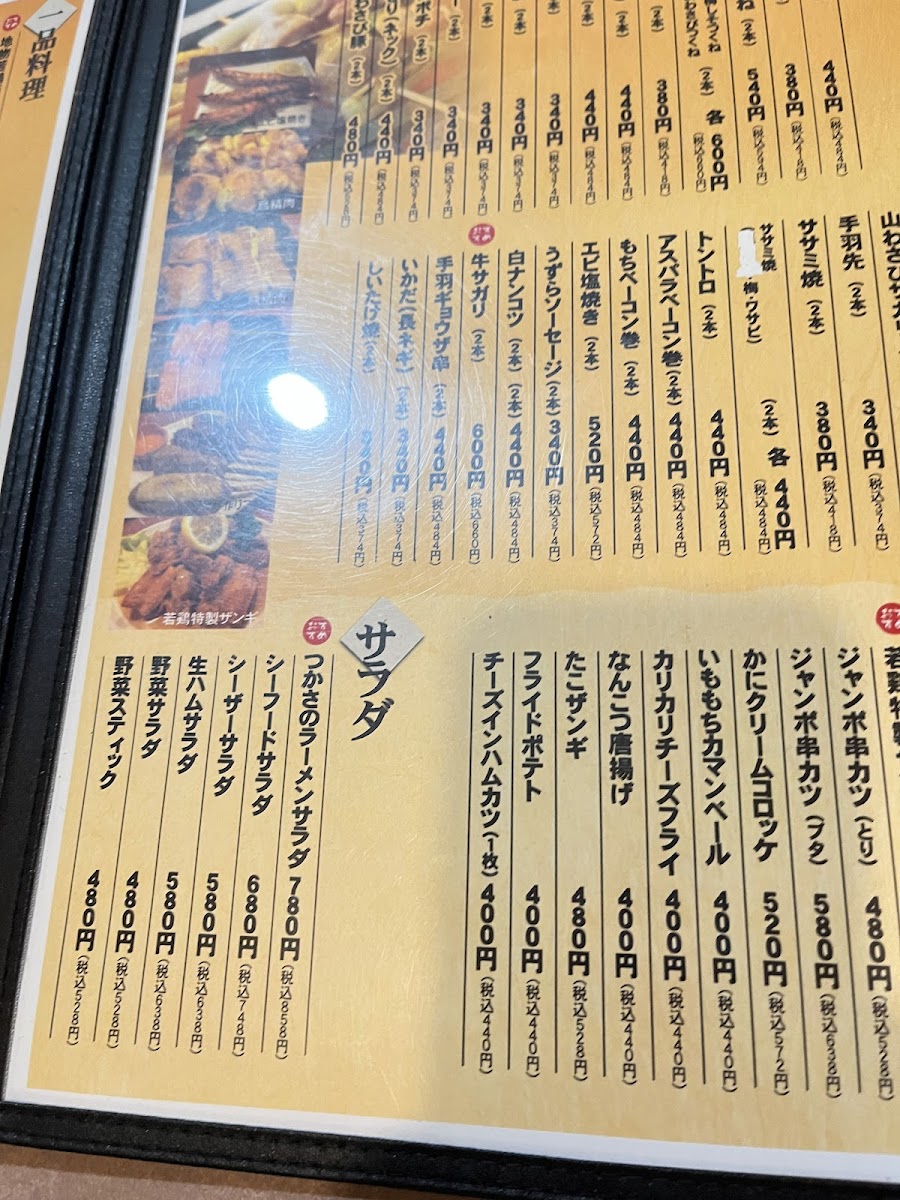 440円(税込484円)
380円(税込418円)
ね(2本) 540円(税込594円)
しそつくね
わさびつくね (2本) 各600円(税込660円)
(2本) 380円(税込418円)
(2本) 440円(税込484円)
(2本) 440円(税込484円)
(2本) 340円(税込374円)
(2本) 340円(税込374円)
(2本) 340円(税込374円)
ー(2本) 340円(税込374円)
ポチ(2本) 340円(税込374円)
り(ネック)(2本) 440円(税込484円)
わさび豚(2本) 480円(税込528円)
山わさびサガリ
手羽先(2本) 340円(税込374円)
ササミ焼(2本) 380円(税込418円)
ササミ焼
・梅・ワサビ)(2本) 各440円(税込484円)
トントロ(2本) 440円(税込484円)
アスパラベーコン巻(2本) 440円(税込484円)
もちベーコン巻(2本) 440円(税込484円)
エビ塩焼き(2本) 520円(税込572円)
うずらソーセージ(2本) 340円(税込374円)
白ナンコツ(2本) 440円(税込484円)
おすすめ 牛サガリ(2本) 600円(税込660円)
手羽ギョウザ串(2本) 440円(税込484円)
いかだ(長ネギ)(2本) 340円(税込374円)
しいたけ焼(2本) 340円(税込374円)
おすすめ 若鶏特製
ジャンボ串カツ(とり) 480円(税込528円)
ジャンボ串カツ(ブタ) 580円(税込638円)
かにクリームコロッケ 520円(税込572円)
いももちカマンベール 400円(税込440円)
カリカリチーズフライ 400円(税込440円)
なんこつ唐揚げ 400円(税込440円)
たこザンギ 480円(税込528円)
フライドポテト 400円(税込440円)
チーズインハムカツ(1枚) 400円(税込440円)
サラダ
おすすめ つかさのラーメンサラダ 780円(税込858円)
シーフードサラダ 680円(税込748円)
シーザーサラダ 580円(税込638円)
生ハムサラダ 580円(税込638円)
野菜サラダ 480円(税込528円)
野菜スティック 480円(税込528円)
塩焼き
鳥精肉
若鶏特製ザンギ
一品料理